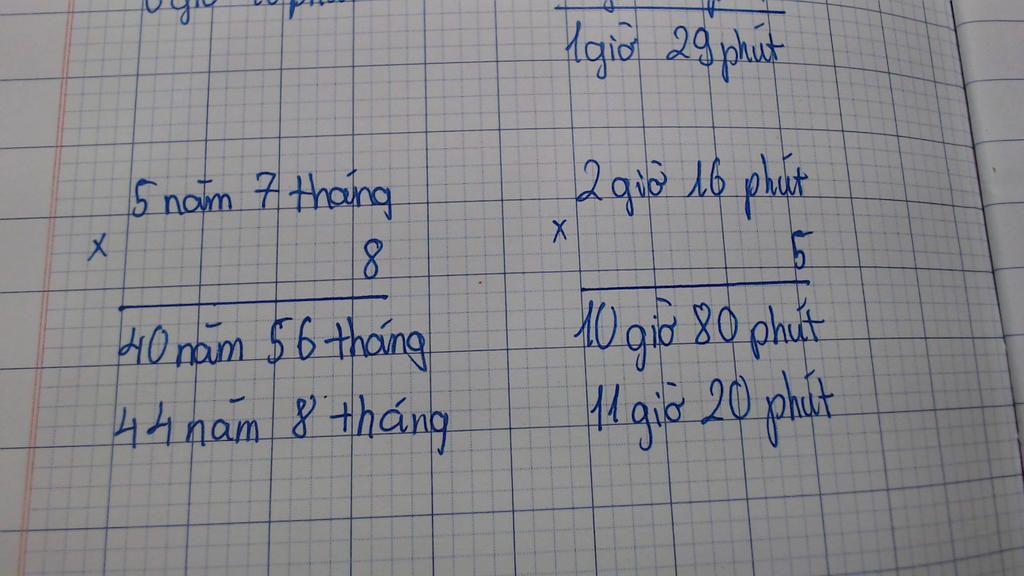 1 giờ 29 phút
5 năm 7 tháng
x
8
40 năm 56 tháng
44 năm 8 tháng
2 giờ 16 phút
x
5
10 giờ 80 phút
11 giờ 20 phút